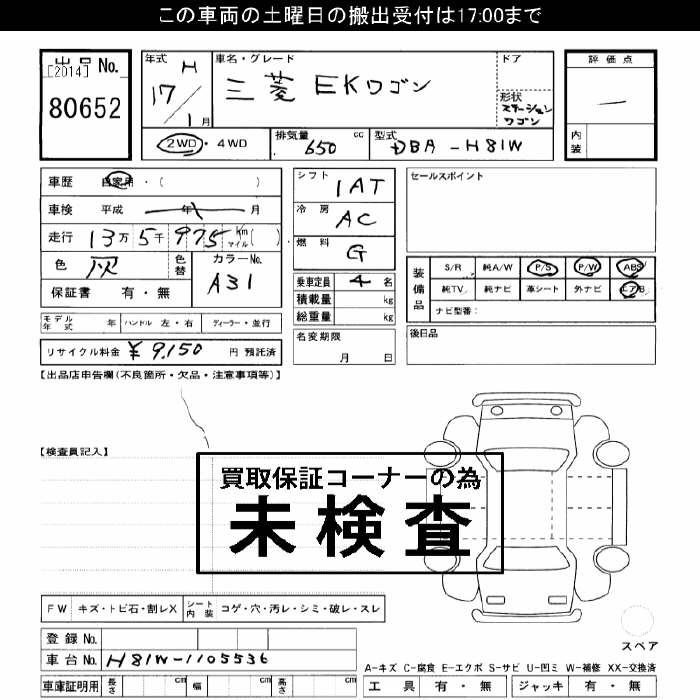 この車両の土曜日の搬出受付は17:00まで
出品 No.
[2014]
80652
年式 H
17/1月
車名・グレード
三菱 EKワゴン
ドア
形状
ステーションワゴン
評価点
—
内装
2WD・4WD
排気量 650 cc
型式 DBA-H81W
車歴 自家用・( )
車検 平成 年 月
走行 13万5千975 km マイル( )
色 灰
色替
カラーNo. A31
保証書 有・無
シフト 1AT
冷房 AC
燃料 G
乗車定員 4 名
積載量 kg
総重量 kg
セールスポイント
装備品
S/R 純A/W P/S P/W ABS
純TV 純ナビ 革シート 外ナビ エアB
ナビ型番:
モデル年式 年 ハンドル 左・右 ディーラー・並行
名変期限
月 日
後日品
リサイクル料金 ¥9,150 円 預託済
【出品店申告欄(不良箇所・欠品・注意事項等)】
【検査員記入】
買取保証コーナーの為
未検査
FW キズ・トビ石・割レX シート内装 コゲ・穴・汚レ・シミ・破レ・スレ
スペア
登録 No.
車台 No. H81W-1105536
車庫証明用 長さ cm 幅 cm 高さ cm
A-キズ C-腐食 E-エクボ S-サビ U-凹ミ W-補修 XX-交換済
工具 有・無 ジャッキ 有・無